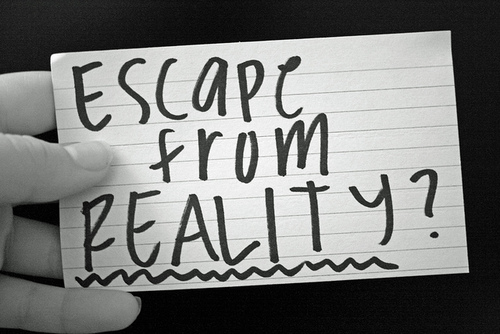 ESCape
from
REALITY?